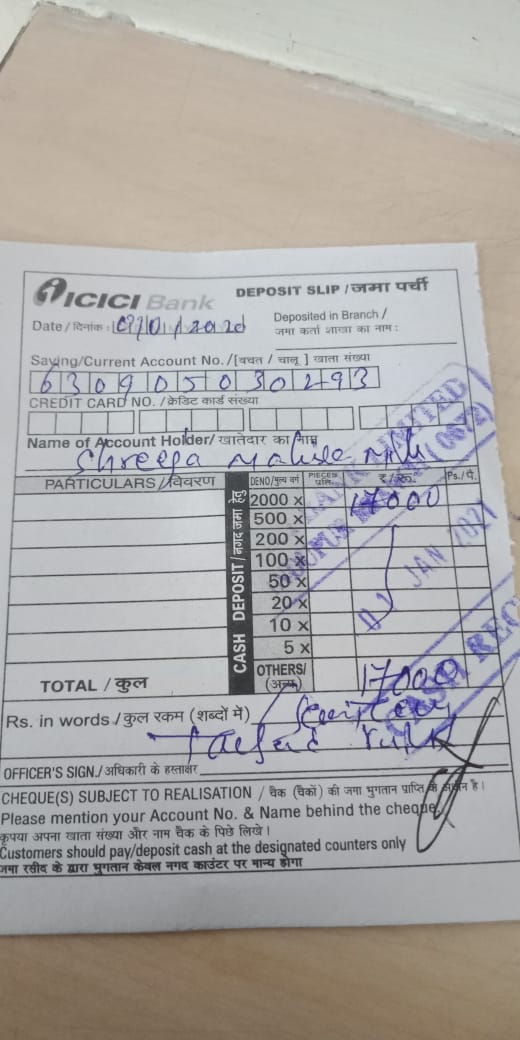 ICICI Bank
DEPOSIT SLIP / जमा पर्ची
Date / दिनांक :
Deposited in Branch /
जमा कर्ता शाखा का नाम :
Saving/Current Account No. / [बचत / चालू ] खाता संख्या
630905030293
CREDIT CARD NO. / क्रेडिट कार्ड संख्या
Name of Account Holder/ खातेदार का नाम
PARTICULARS / विवरण DENO/मूल्य वर्ग PIECES ₹ / रू. Ps./पै.
CASH DEPOSIT / नगद जमा हेतु
2000 x 17000
500 x
200 x
100 x
50 x
20 x
10 x
5 x
OTHERS/
(अन्य)
TOTAL / कुल 17000
JAN 2021
Rs. in words / कुल रकम (शब्दों में)
OFFICER'S SIGN./ अधिकारी के हस्ताक्षर
CHEQUE(S) SUBJECT TO REALISATION / चैक (चैकों) की जमा भुगतान प्राप्ति के है।
Please mention your Account No. & Name behind the cheque
कृपया अपना खाता संख्या और नाम चैक के पिछे लिखे।
Customers should pay/deposit cash at the designated counters only
जमा रसीद के द्वारा भुगतान केवल नगद काउंटर पर मान्य होगा